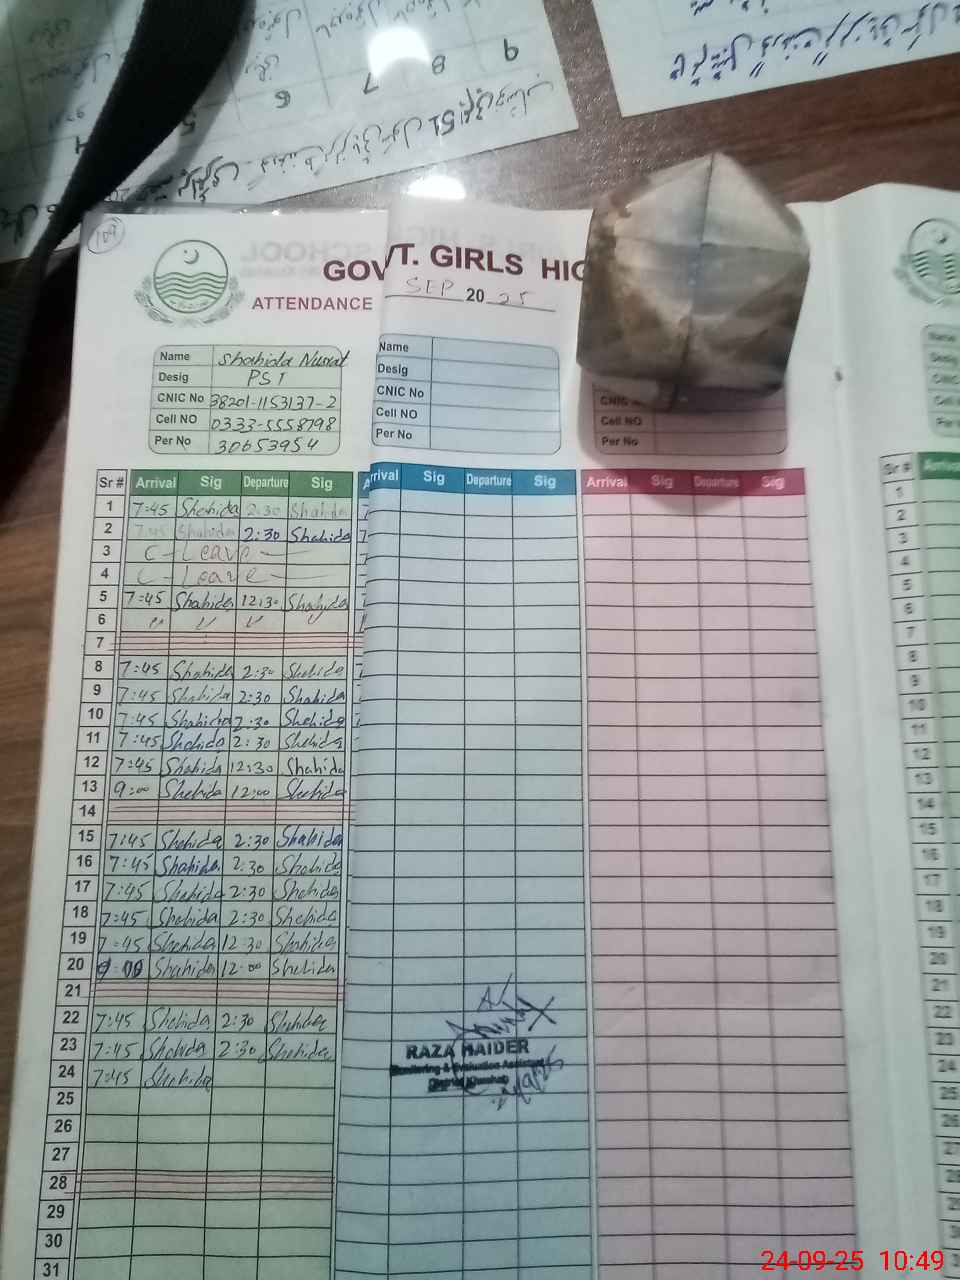 9 8 7 6 5 4
109
GOVT. GIRLS HIG
SEP 2025
ATTENDANCE
Name Shahida Nusrat
Desig PST
CNIC No 38201-1153137-2
Cell NO 0333-5558798
Per No 30653954
Name
Desig
CNIC No
Cell NO
Per No
CNIC
Cell NO
Per No
Sr # Arrival Sig Departure Sig
1 7:45 Shahida 2:30 Shahida
2 7:45 Shahida 2:30 Shahida
3 C - Leave -
4 C - Leave -
5 7:45 Shahida 12:30 Shahida
6 " " " "
7
8 7:45 Shahida 2:30 Shahida
9 7:45 Shahida 2:30 Shahida
10 7:45 Shahida 2:30 Shahida
11 7:45 Shahida 2:30 Shahida
12 7:45 Shahida 12:30 Shahida
13 9:00 Shahida 12:00 Shahida
14
15 7:45 Shahida 2:30 Shahida
16 7:45 Shahida 2:30 Shahida
17 7:45 Shahida 2:30 Shahida
18 7:45 Shahida 2:30 Shahida
19 7:45 Shahida 12:30 Shahida
20 9:00 Shahida 12:00 Shahida
21
22 7:45 Shahida 2:30 Shahida
23 7:45 Shahida 2:30 Shahida
24 7:45 Shahida
25
26
27
28
29
30
31
rrival Sig Departure Sig
Arrival Sig Departure Sig
RAZA HAIDER
Monitoring & Evaluation Assistant
District Khushab
Sr #
1
2
3
4
5
6
7
8
9
10
11
12
13
14
15
16
17
18
19
20
21
22
23
24
25
26
27
28
29
30
24-09-25 10:49